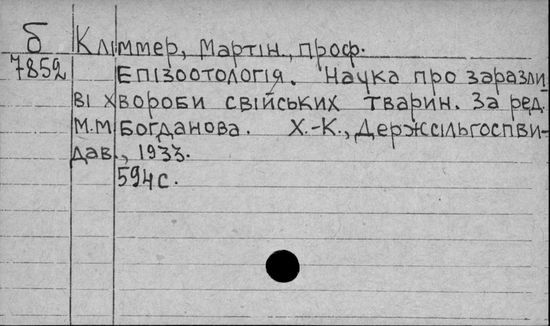 б Кліммер, Мартін, проф.
7852 Епізоотологія. Наука про заразли-
ві хвороби свійських тварин. За ред.
М.М Богданова. Х.-К., Держсільгоспви-
дав., 1933.
594 с.